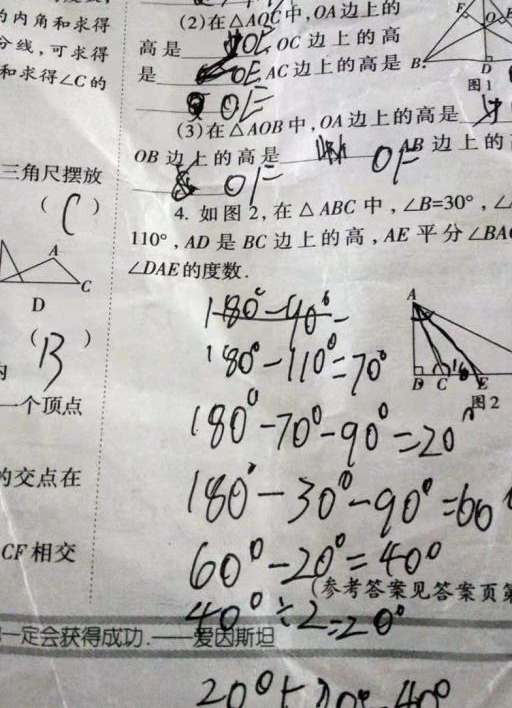 的内角和求得
分线,可求得
和求得∠C的
三角尺摆放
( C )
A
C
D
( B )
一个顶点
的交点在
CF相交
(2)在△AOC中,OA边上的
高是 OE OC边上的高
是 OE AC边上的高是
OE
F
O
B
D
图1
(3)在△AOB中,OA边上的高是
OB边上的高是 OF AB边上的
OF
4. 如图2,在△ABC中,∠B=30°,∠
110°,AD是BC边上的高,AE平分∠BAC
∠DAE的度数.
A
D C E
图2
180°-40°-
180°-110°=70°
180°-70°-90°=20°
180°-30°-90°=60°
60°-20°=40°
(参考答案见答案页第
40°÷2=20°
一定会获得成功.——爱因斯坦
20°+20°=40°